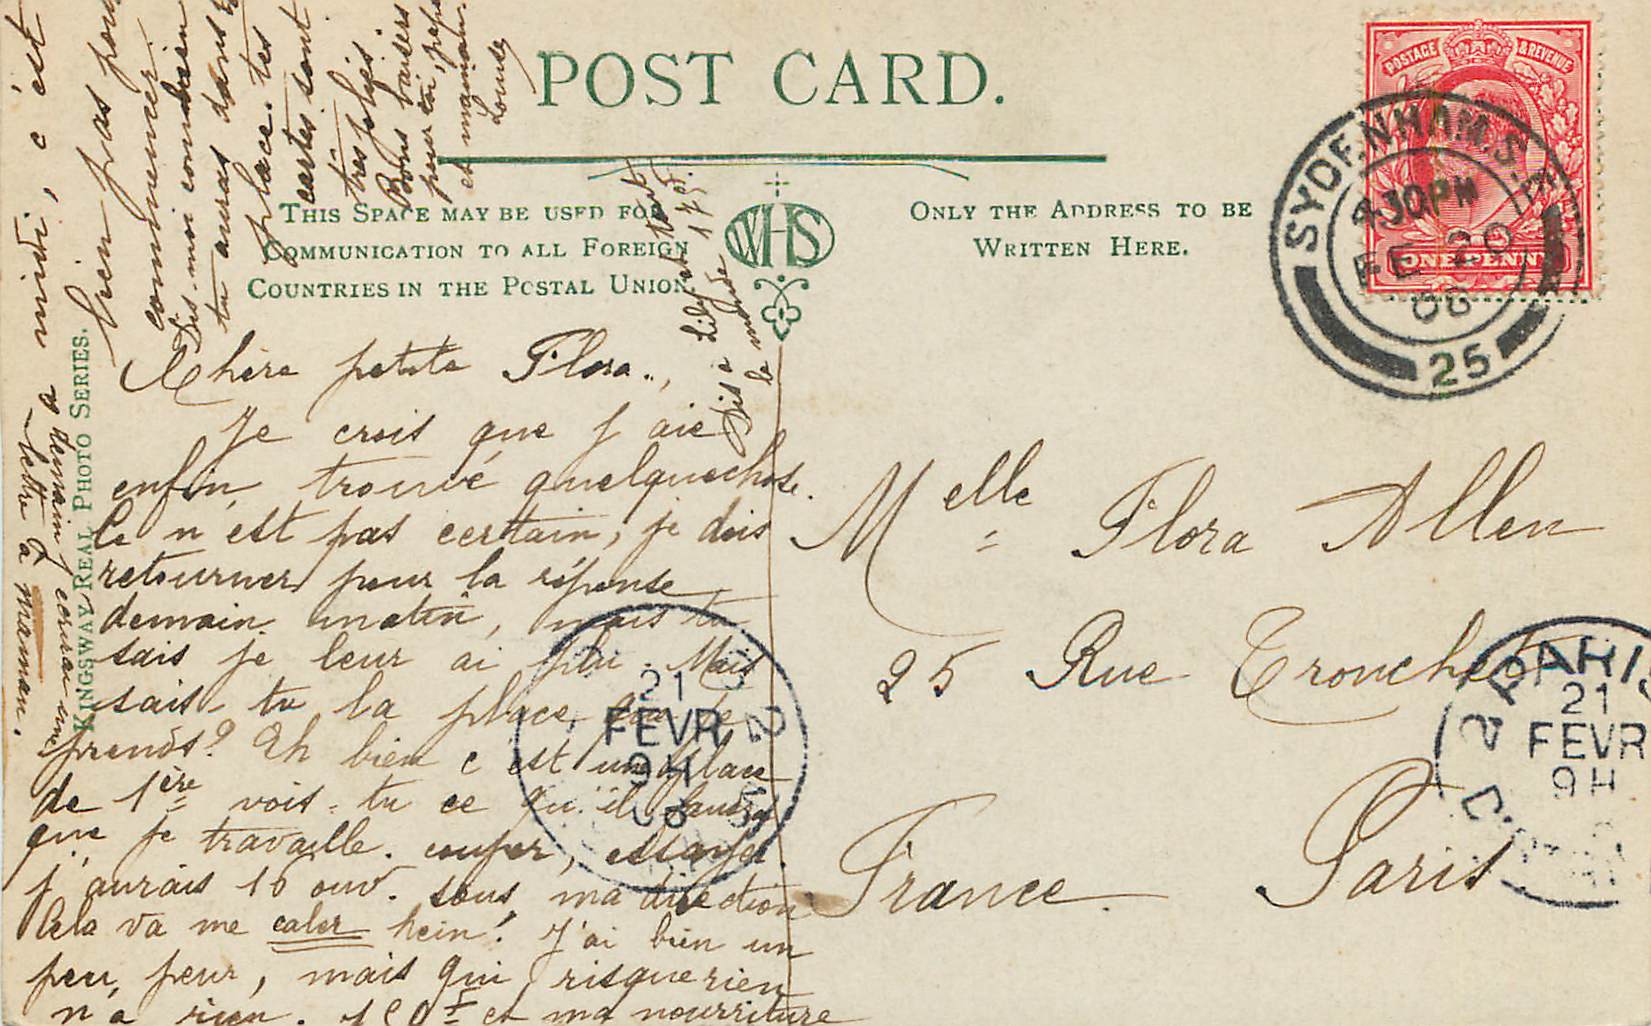 POST CARD.
THIS SPACE MAY BE USED FOR
COMMUNICATION TO ALL FOREIGN
COUNTRIES IN THE POSTAL UNION.
WHS
ONLY THE ADDRESS TO BE
WRITTEN HERE.
POSTAGE & REVENUE
ONE PENNY
SYDENHAM. S.E.
4 30PM
FE 20
08
25
KINGSWAY REAL PHOTO SERIES.
Chère petite Flora.,
Je crois que j'aie
enfin trouvé quelquechose.
Ce n'est pas certain, je dois
retourner pour la réponse
demain matin, mais tu
sais je leur ai plu. Mais
sais-tu la place que je
prends? Eh bien c'est une place
de 1ère vois-tu ce qu'il faudra
que je travaille. couper, essayer.
j'aurais 16 ouv. sous ma direction
Cela va me caler hein! J'ai bien un
peu peur, mais qui risque rien
n'a rien. et ma nourriture
c'est
hien pas pour
commencer
Dis-moi combien
tu auras dans
place. tes
cartes sont
très jolies.
Bons baisers
pour toi, papa
et maman.
Louise
demain j'écrirai une
lettre à maman.
Dis à
le monde
Melle Flora Allen
25 Rue Tronchet
Paris
France.
21
FEVR
9H
08
PARIS
21
FEVR
9H